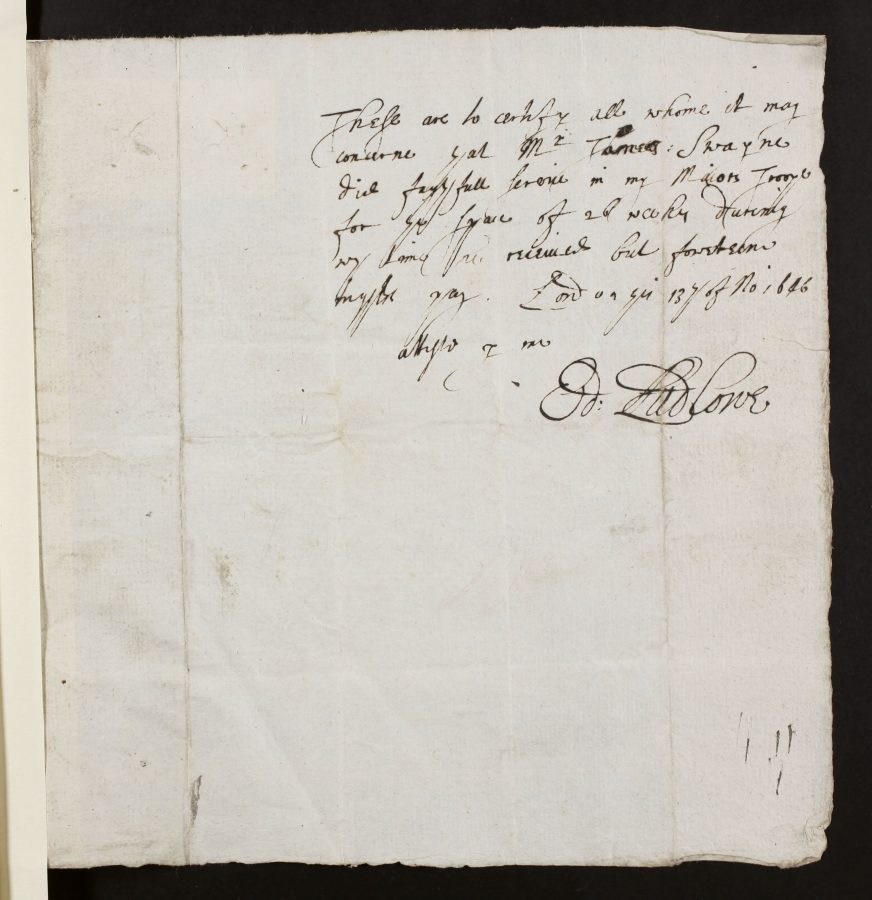 These are to certify all whome it may
concerne yat Mr James: Swayne
did faythfull service in my Maiors Troope
for ye space of 26 weekes dureing
wch time he received but fowerteene
dayes pay. Lond on ye 13th of No: 1646
attest p me
Ed: Ludlowe